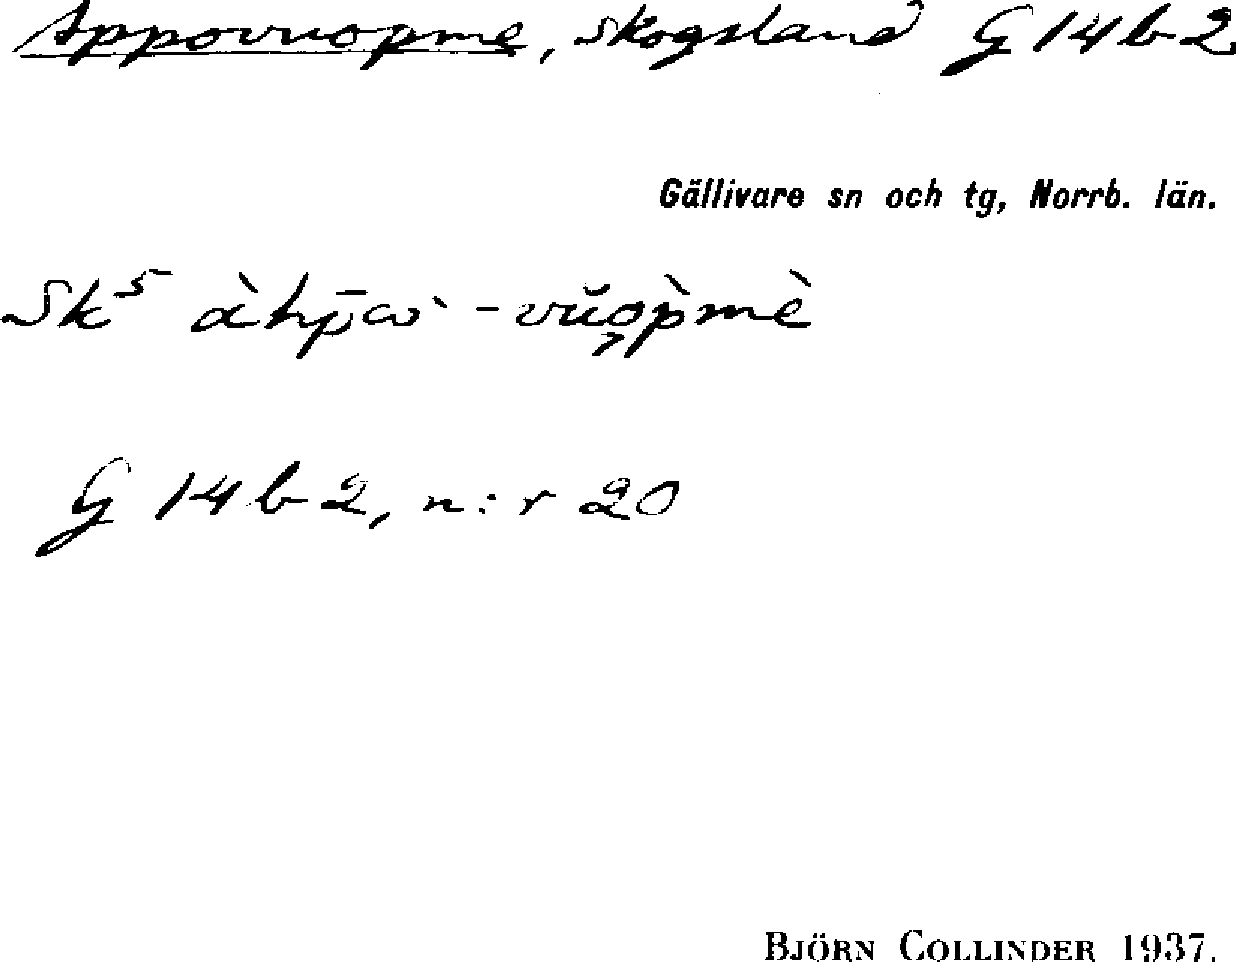 Appovuopme, skogsland G 14 b 2
Gällivare sn och tg, Norrb. län.
Sk⁵ àhp̄ὼ -vŭo̦p̀mè
G 14 b 2, n:r 20
BJÖRN COLLINDER 1937.